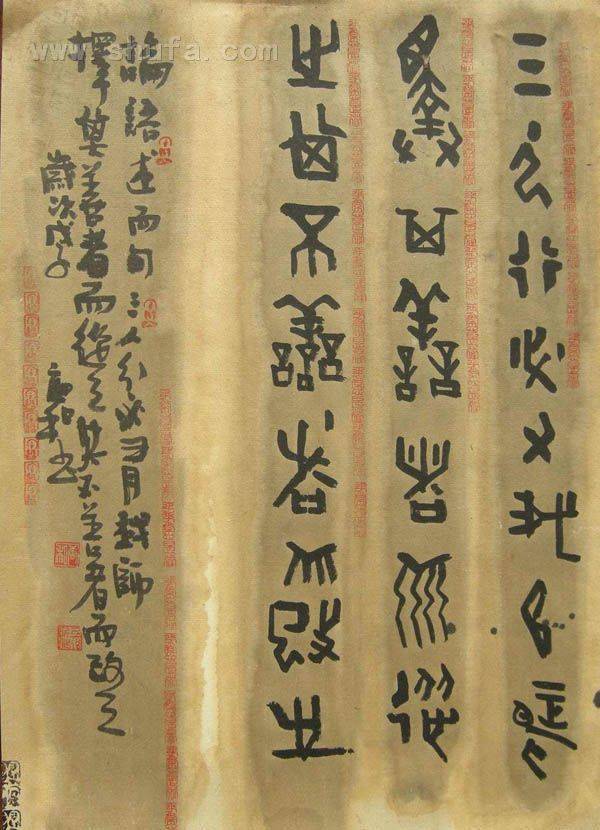 三人行必又我師焉
擇其善者而從
之其不善者而改之
論語述而句三人行必有我師
擇其善者而從之其不善者而改之
歲次戊子
書
www.shufa.com